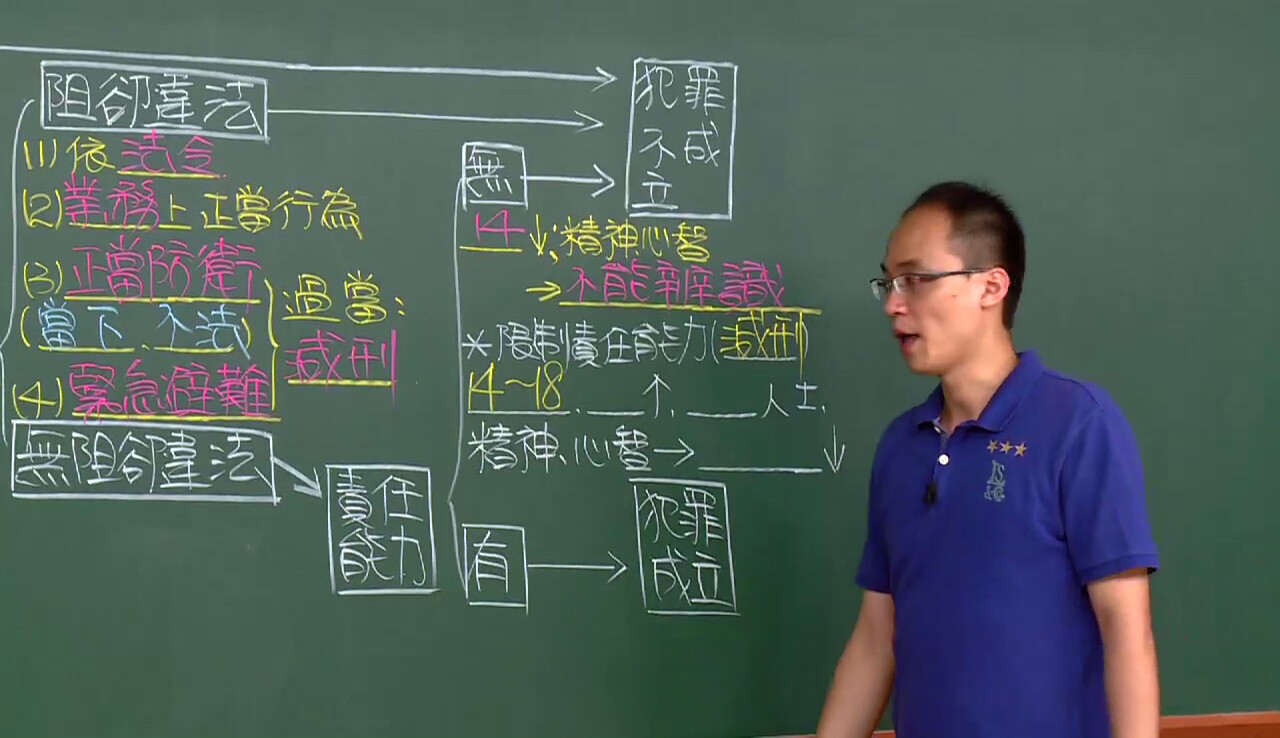 阻卻違法
(1)依法令
(2)業務上正當行為
(3)正當防衛
(當下、不法)
(4)緊急避難
過當:
減刑
無阻卻違法
責任
能力
無
14↓;精神心智
→不能辨識
*限制責任能力(減刑
14~18、___个、___人士、
精神、心智→_____↓
有
犯罪
不成
立
犯罪
成立